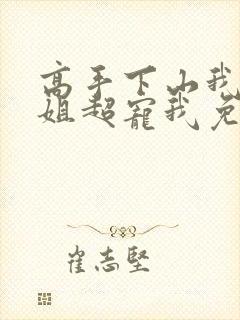 高手下山我
姐超宠我免
崔志坚